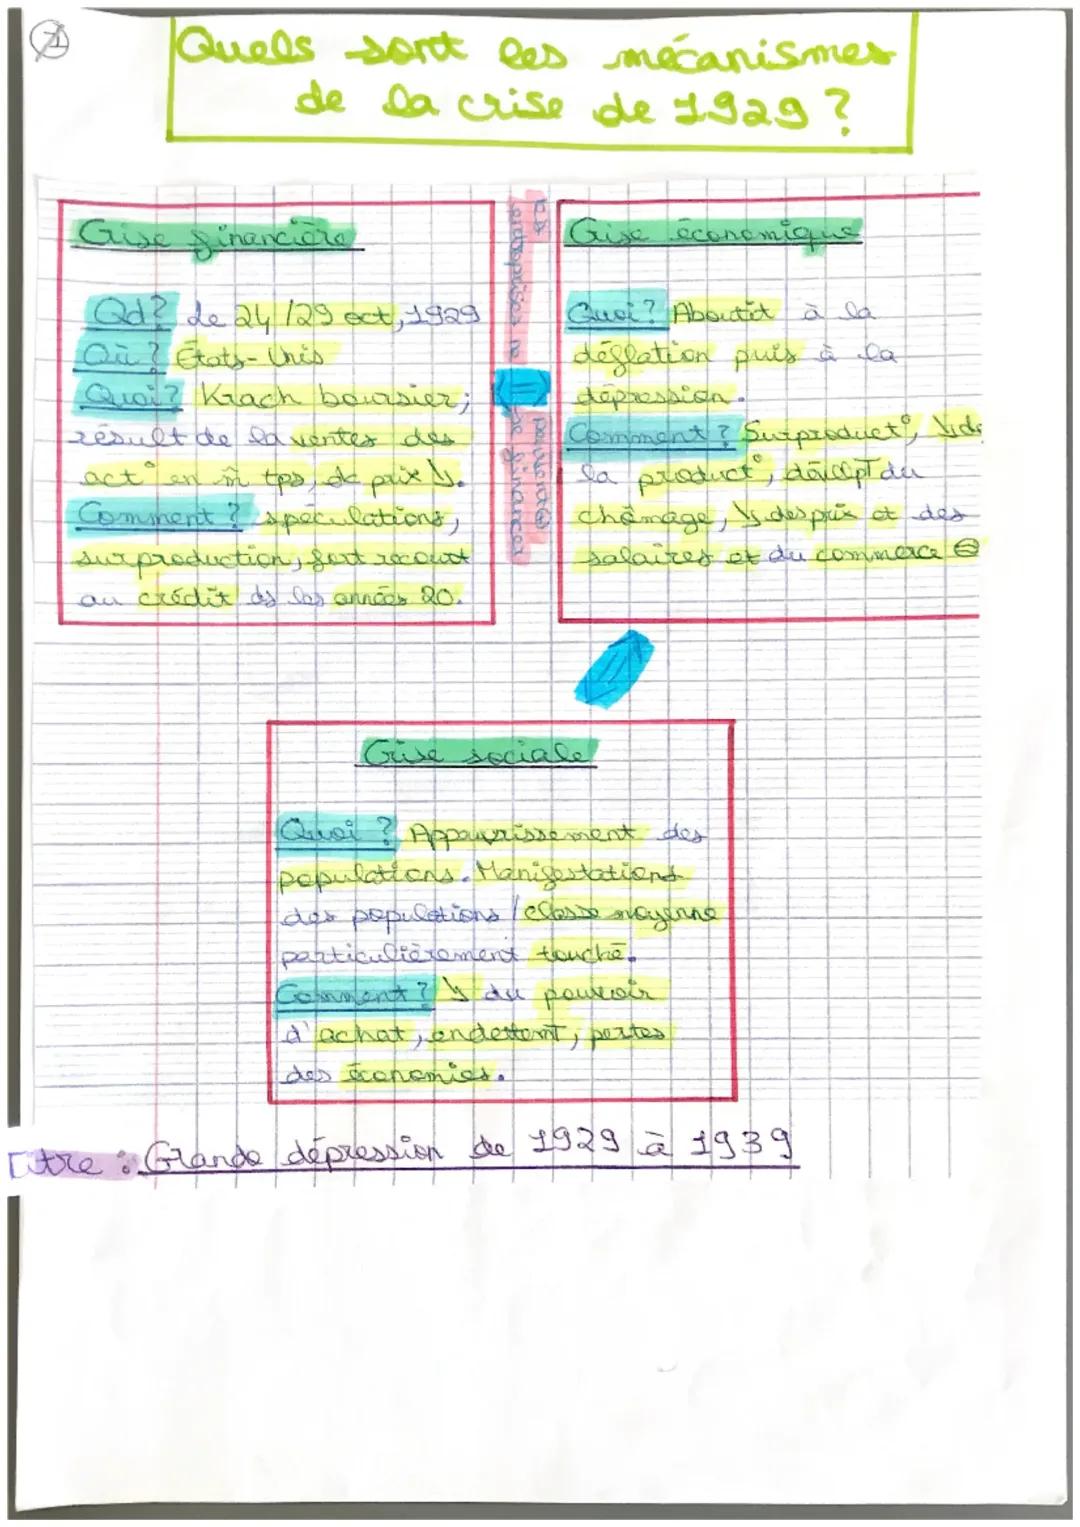 1
Quels sont les mécanismes
de la crise de 1929 ?
Crise financière
Qd? de 24/29 oct, 1929
Où? États-Unis
Quoi? Krach boursier;
résult de la ventes des
act° en m̂ tps, dc prix ↘.
Comment? spéculations,
surproduction, fort recourt
au crédit ds les années 20.
Les entreprises ne
peuvent ⊕ se financer
Crise économique
Quoi? Aboutit à la
déflation puis à la
dépression.
Comment? Surproduct°, ↘ de
la product°, dévlopT du
chômage, ↘ des prix et des
salaires et du commerce ⊖
Crise sociale
Quoi? Appauvrissement des
populations. Manifestations
des populations / classe moyenne
particulièrement touché.
Comment? ↘ du pouvoir
d'achat, endettemT, pertes
des économies.
Titre : Grande dépression de 1929 à 1939